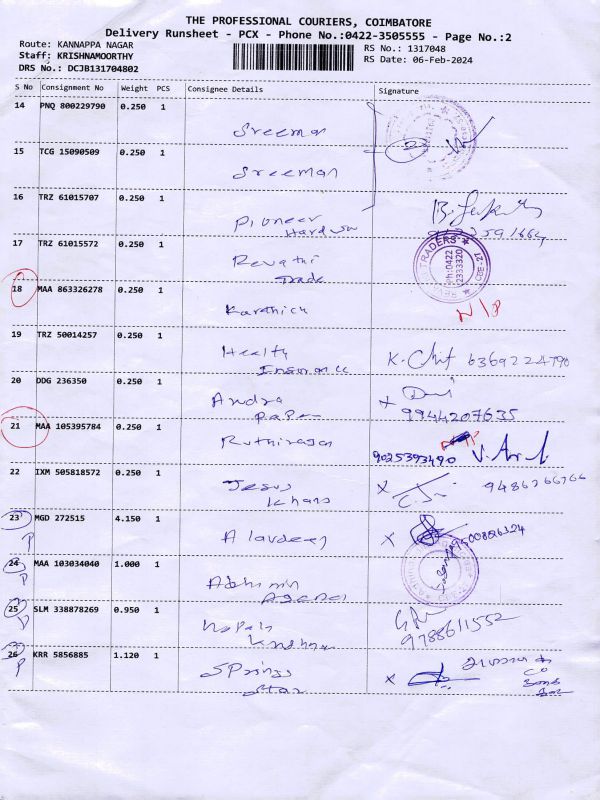 THE PROFESSIONAL COURIERS, COIMBATORE
Delivery Runsheet - PCX - Phone No.:0422-3505555 - Page No.:2
Route: KANNAPPA NAGAR
RS No.: 1317048
Staff: KRISHNAMOORTHY
RS Date: 06-Feb-2024
DRS No.: DCJB131704802
S No Consignment No Weight PCS Consignee Details Signature
14 PNQ 800229790 0.250 1
Sreeman
15 TCG 15090509 0.250 1
Sreeman
16 TRZ 61015707 0.250 1
Pioneer
17 TRZ 61015572 0.250 1
Revathi
Trade
TRADERS
18 MAA 863326278 0.250 1
Karthick
N/P
19 TRZ 50014257 0.250 1
Health
Insurance
6369224790
20 DDG 236350 0.250 1
Andra
Paper
9944207635
21 MAA 105395784 0.250 1
Ruthirajan
9025393490
22 IXM 505818572 0.250 1
Jesus
Khans
9486266766
23 MGD 272515 4.150 1
P
Alavdeen
24 MAA 103034040 1.000 1
P
25 SLM 338878269 0.950 1
P
9788611552
26 KRR 5856885 1.120 1
P
Springs
Star